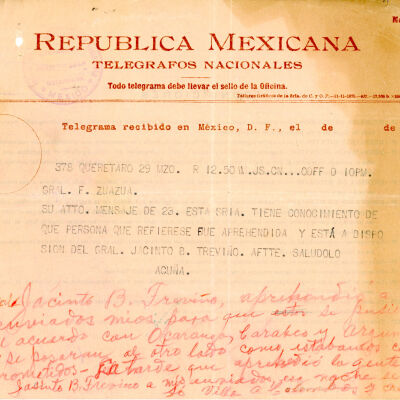 No
REPUBLICA MEXICANA
TELEGRAFOS NACIONALES
Todo telegrama debe llevar el sello de la Oficina.
Talleres Gráficos de la Sria. de C. y O. P.
Telegrama recibido en México, D. F., el de de
378 QUERETARO 29 MZO. R 12.50 M.JS.CN...COFF D 10PM.
GRAL. F. ZUAZUA.
SU ATTO. MENSAJE DE 23. ESTA SRIA. TIENE CONOCIMIENTO DE
QUE PERSONA QUE REFIERESE FUE APREHENDIDA Y ESTÁ A DISPO
SION DEL GRAL. JACINTO B. TREVIÑO. AFTTE. SALUDOLO
ACUÑA.
Jacinto B. Treviño, aprehendió a
enviados mios para que
acuerdo con Caraveo y
se pasaran al otro lado como estabamos
tarde que aprehendió la gente
Jasinto B. Trevino a mis enviados, en noche
Villa a Columbus y